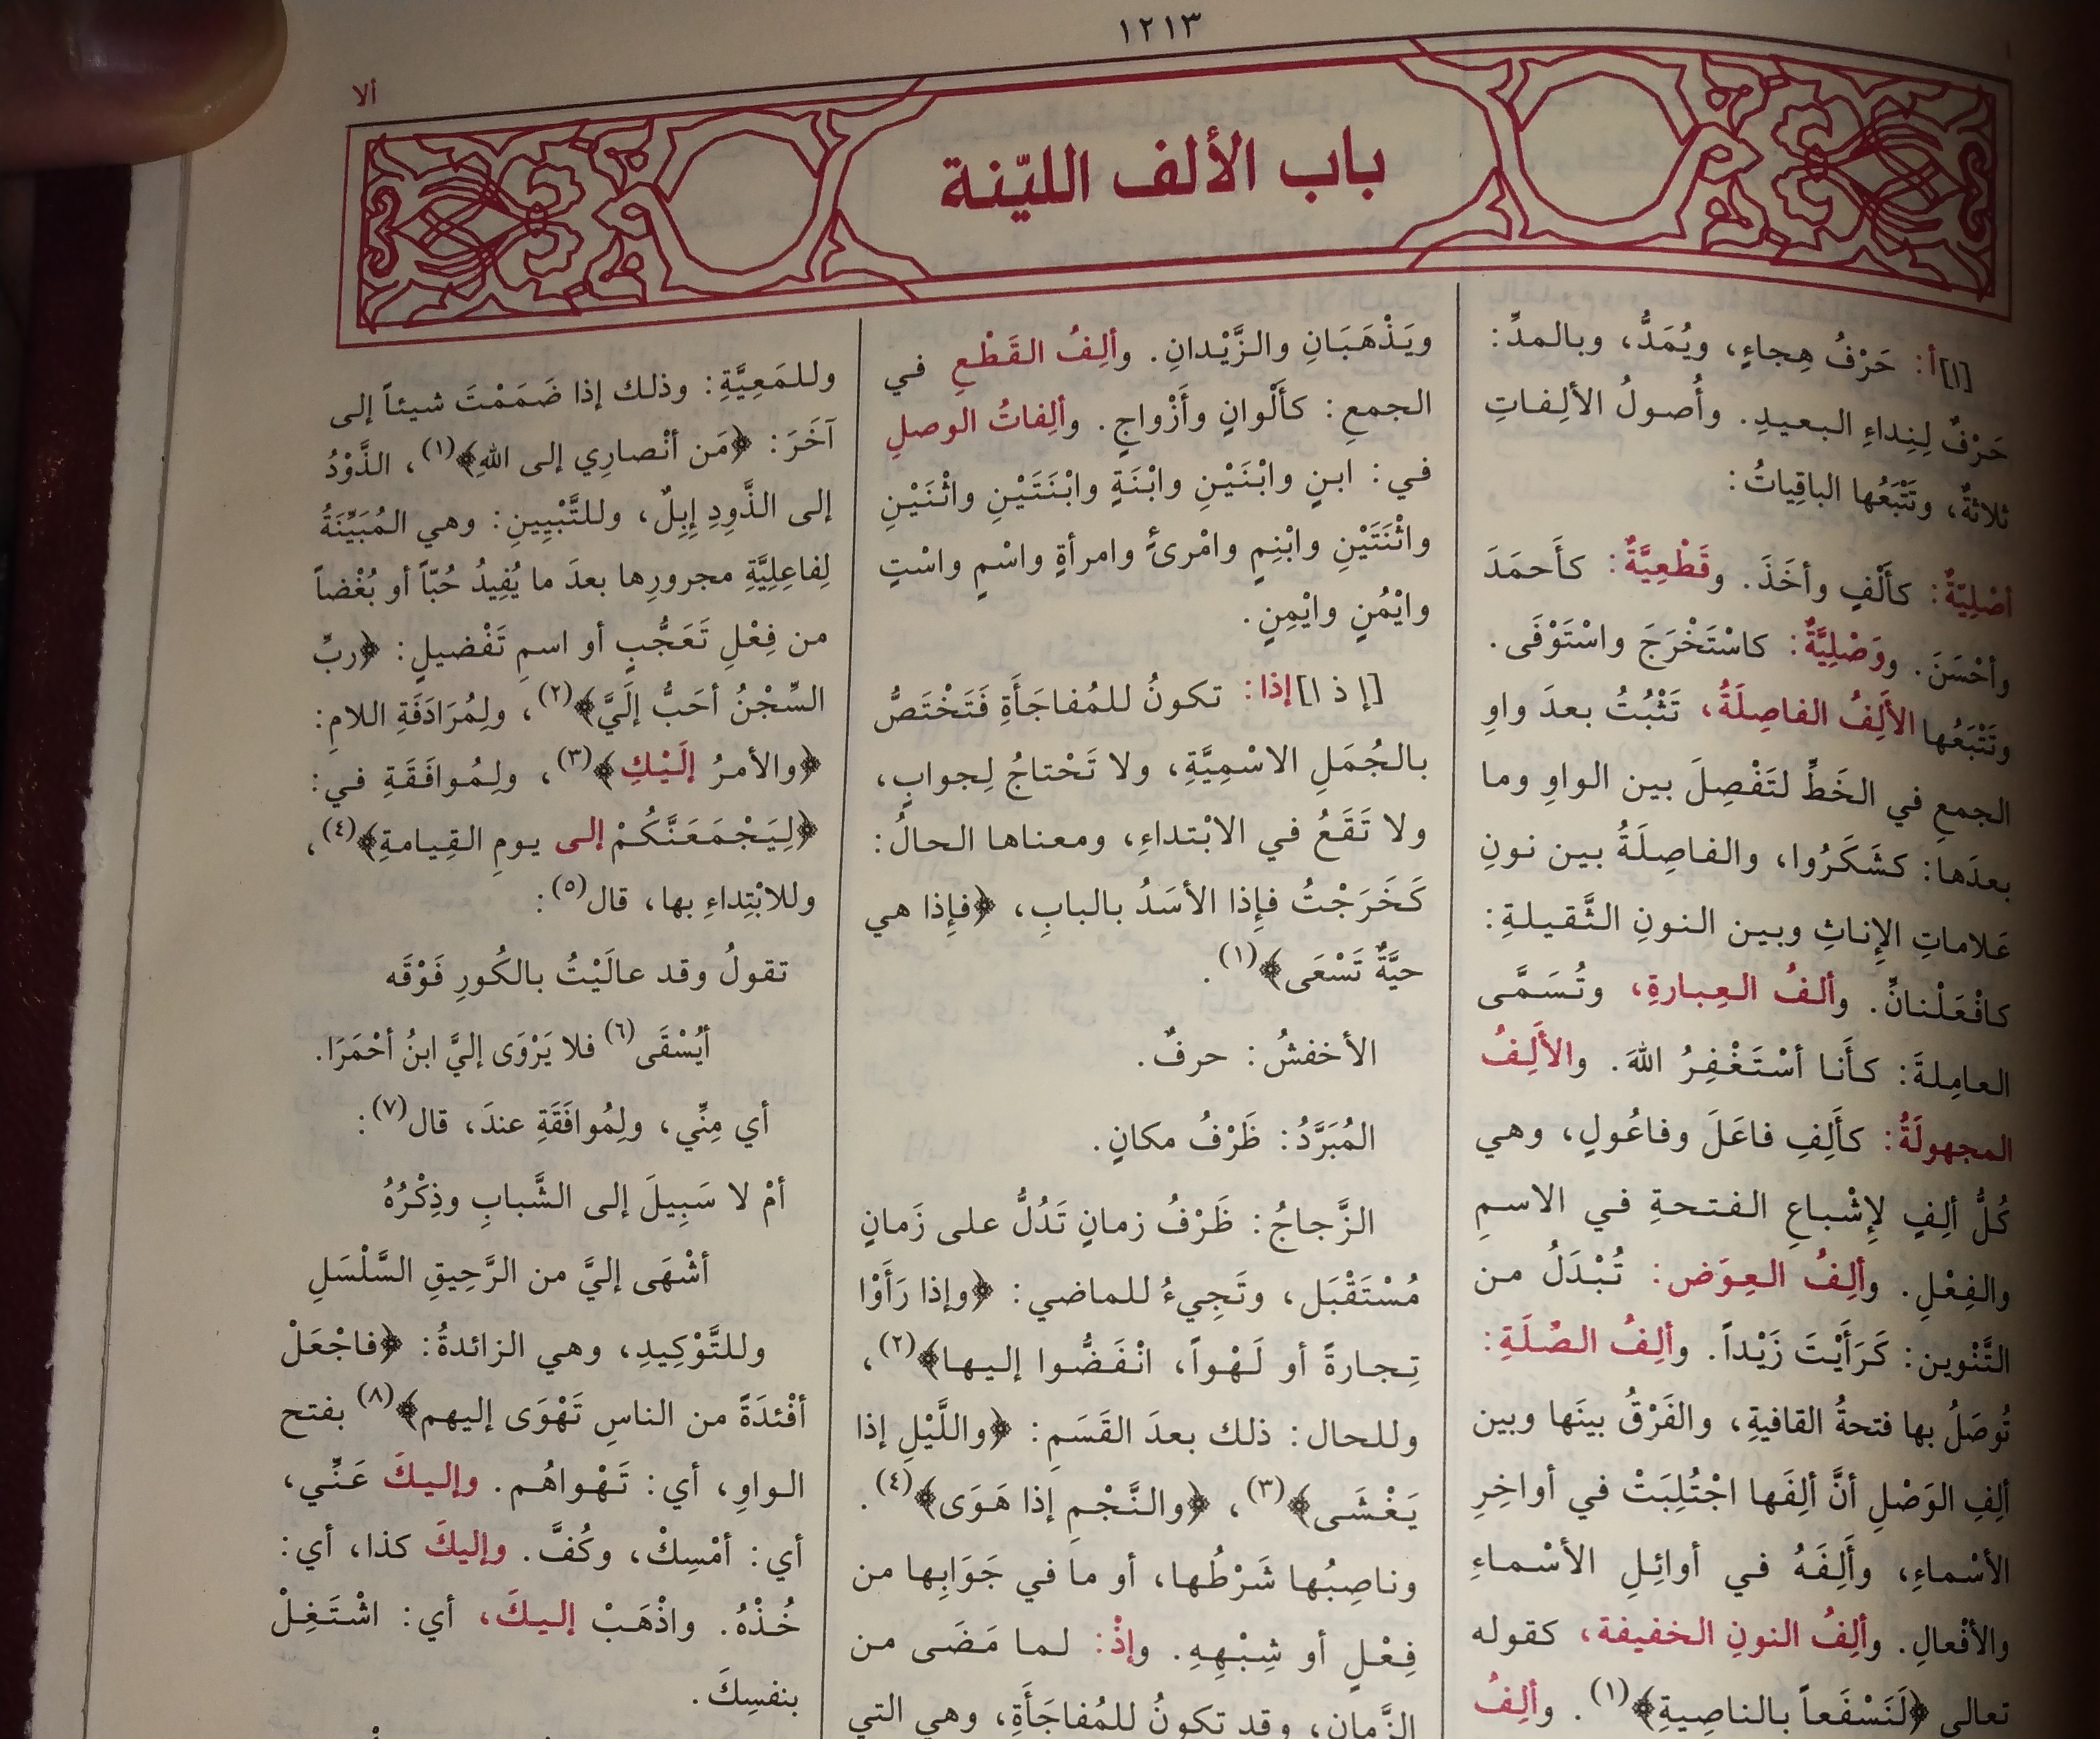 ١٢١٣
ألا
باب الألف الليّنة
[ا]أ: حَرْفُ هِجاءٍ، ويُمَدُّ، وبالمدِّ:
حَرْفٌ لِنِداءِ البعيدِ. وأُصولُ الألِفاتِ
ثلاثةٌ، وتَتْبَعُها الباقِياتُ:
أصْلِيَّةٌ: كأَلْفٍ وأخَذَ. وقَطْعِيَّةٌ: كأَحمَدَ
وأحْسَنَ. ووَصْلِيَّةٌ: كاسْتَخْرَجَ واسْتَوْفَى.
وتَتْبَعُها الأَلِفُ الفاصِلَةُ، تَثْبُتُ بعدَ واوِ
الجمعِ في الخَطِّ لتَفْصِلَ بين الواوِ وما
بعدَها: كشَكَرُوا، والفاصِلَةُ بين نونِ
عَلاماتِ الإِناثِ وبين النونِ الثَّقيلةِ:
كافْعَلْنانِّ. وألفُ العِبارةِ، وتُسَمَّى
العامِلةَ: كأَنا أسْتَغْفِرُ اللهَ. والأَلِفُ
المجهولَةُ: كأَلِفِ فاعَلَ وفاعُولٍ، وهي
كُلُّ ألِفٍ لإِشْباعِ الفتحةِ في الاسمِ
والفِعْلِ. وألِفُ العِوَض: تُبْدَلُ من
التَّنْوين: كَرَأَيْتَ زَيْداً. وألِفُ الصِّلَةِ:
تُوصَلُ بها فتحةُ القافيةِ، والفَرْقُ بينَها وبين
ألِفِ الوَصْلِ أنَّ ألِفَها اجْتُلِبَتْ في أواخِرِ
الأسْماءِ، وأَلِفَهُ في أوائِلِ الأسْماءِ
والأفْعالِ. وألِفُ النونِ الخفيفة، كقوله
تعالى ﴿لَنَسْفَعاً بالناصِيةِ﴾(١). وألِفُ
ويَذْهَبَانِ والزَّيْدانِ. وألِفُ القَطْعِ في
الجمعِ: كأَلْوانٍ وأَزْواجٍ. وألِفاتُ الوصلِ
في: ابنٍ وابْنَيْنِ وابْنَةٍ وابْنَتَيْنِ واثْنَيْنِ
واثْنَتَيْنِ وابْنِمٍ وامْرئٍ وامرأةٍ واسْمٍ واسْتٍ
وايْمُنٍ وايْمِنٍ.
[إ ذ ا]إذا: تكونُ للمُفاجَأَةِ فَتَخْتَصُّ
بالجُمَلِ الاسْمِيَّةِ، ولا تَحْتاجُ لِجوابٍ،
ولا تَقَعُ في الابْتداءِ، ومعناها الحالُ:
كَخَرَجْتُ فإِذا الأسَدُ بالبابِ، ﴿فإِذا هي
حيَّةٌ تَسْعَى﴾(١).
الأخفشُ: حرفٌ.
المُبَرَّدُ: ظَرْفُ مكانٍ.
الزَّجاجُ: ظَرْفُ زمانٍ تَدُلُّ على زَمانٍ
مُسْتَقْبَل، وتَجِيءُ للماضي: ﴿وإذا رَأَوْا
تِجارةً أو لَهْواً، انْفَضُّوا إليها﴾(٢)،
وللحال: ذلك بعدَ القَسَمِ: ﴿واللَّيْلِ إذا
يَغْشَى﴾(٣)، ﴿والنَّجْمِ إذا هَوَى﴾(٤).
وناصِبُها شَرْطُها، أو ما في جَوَابِها من
فِعْلٍ أو شِبْهِهِ. وإذْ: لما مَضَى من
الزَّمانِ، وقد تكونُ للمُفاجَأَةِ، وهي التي
وللمَعِيَّةِ: وذلك إذا ضَمَمْتَ شيئاً إلى
آخَرَ: ﴿مَن أنْصارِي إلى اللهِ﴾(١)، الذَّوْدُ
إلى الذَّوِدِ إِبِلٌ، وللتَّبْيِينِ: وهي المُبَيِّنَةُ
لِفاعِلِيَّةِ مجرورِها بعدَ ما يُفِيدُ حُبّاً أو بُغْضاً
من فِعْلِ تَعَجُّبٍ أو اسمِ تَفْضيلٍ: ﴿ربِّ
السِّجْنُ أحَبُّ إلَيَّ﴾(٢)، ولِمُرَادَفَةِ اللامِ:
﴿والأمرُ إلَيْكِ﴾(٣)، ولِمُوافَقَةِ في:
﴿لِيَجْمَعَنَّكُمْ إلى يومِ القِيامةِ﴾(٤)،
وللابْتِداءِ بها، قال(٥):
تقولُ وقد عالَيْتُ بالكُورِ فَوْقَه
أيُسْقَى(٦) فلا يَرْوَى إليَّ ابنُ أحْمَرَا.
أي مِنِّي، ولِمُوافَقَةِ عندَ، قال(٧):
أمْ لا سَبِيلَ إلى الشَّبابِ وذِكْرُهُ
أشْهَى إليَّ من الرَّحِيقِ السَّلْسَلِ
وللتَّوْكِيدِ، وهي الزائدةُ: ﴿فاجْعَلْ
أفْئدَةً من الناسِ تَهْوَى إليهم﴾(٨) بفتح
الواوِ، أي: تَهْواهُم. وإليكَ عَنِّي،
أي: أمْسِكْ، وكُفَّ. وإليكَ كذا، أي:
خُذْهُ. واذْهَبْ إليكَ، أي: اشْتَغِلْ
بنفسِكَ.